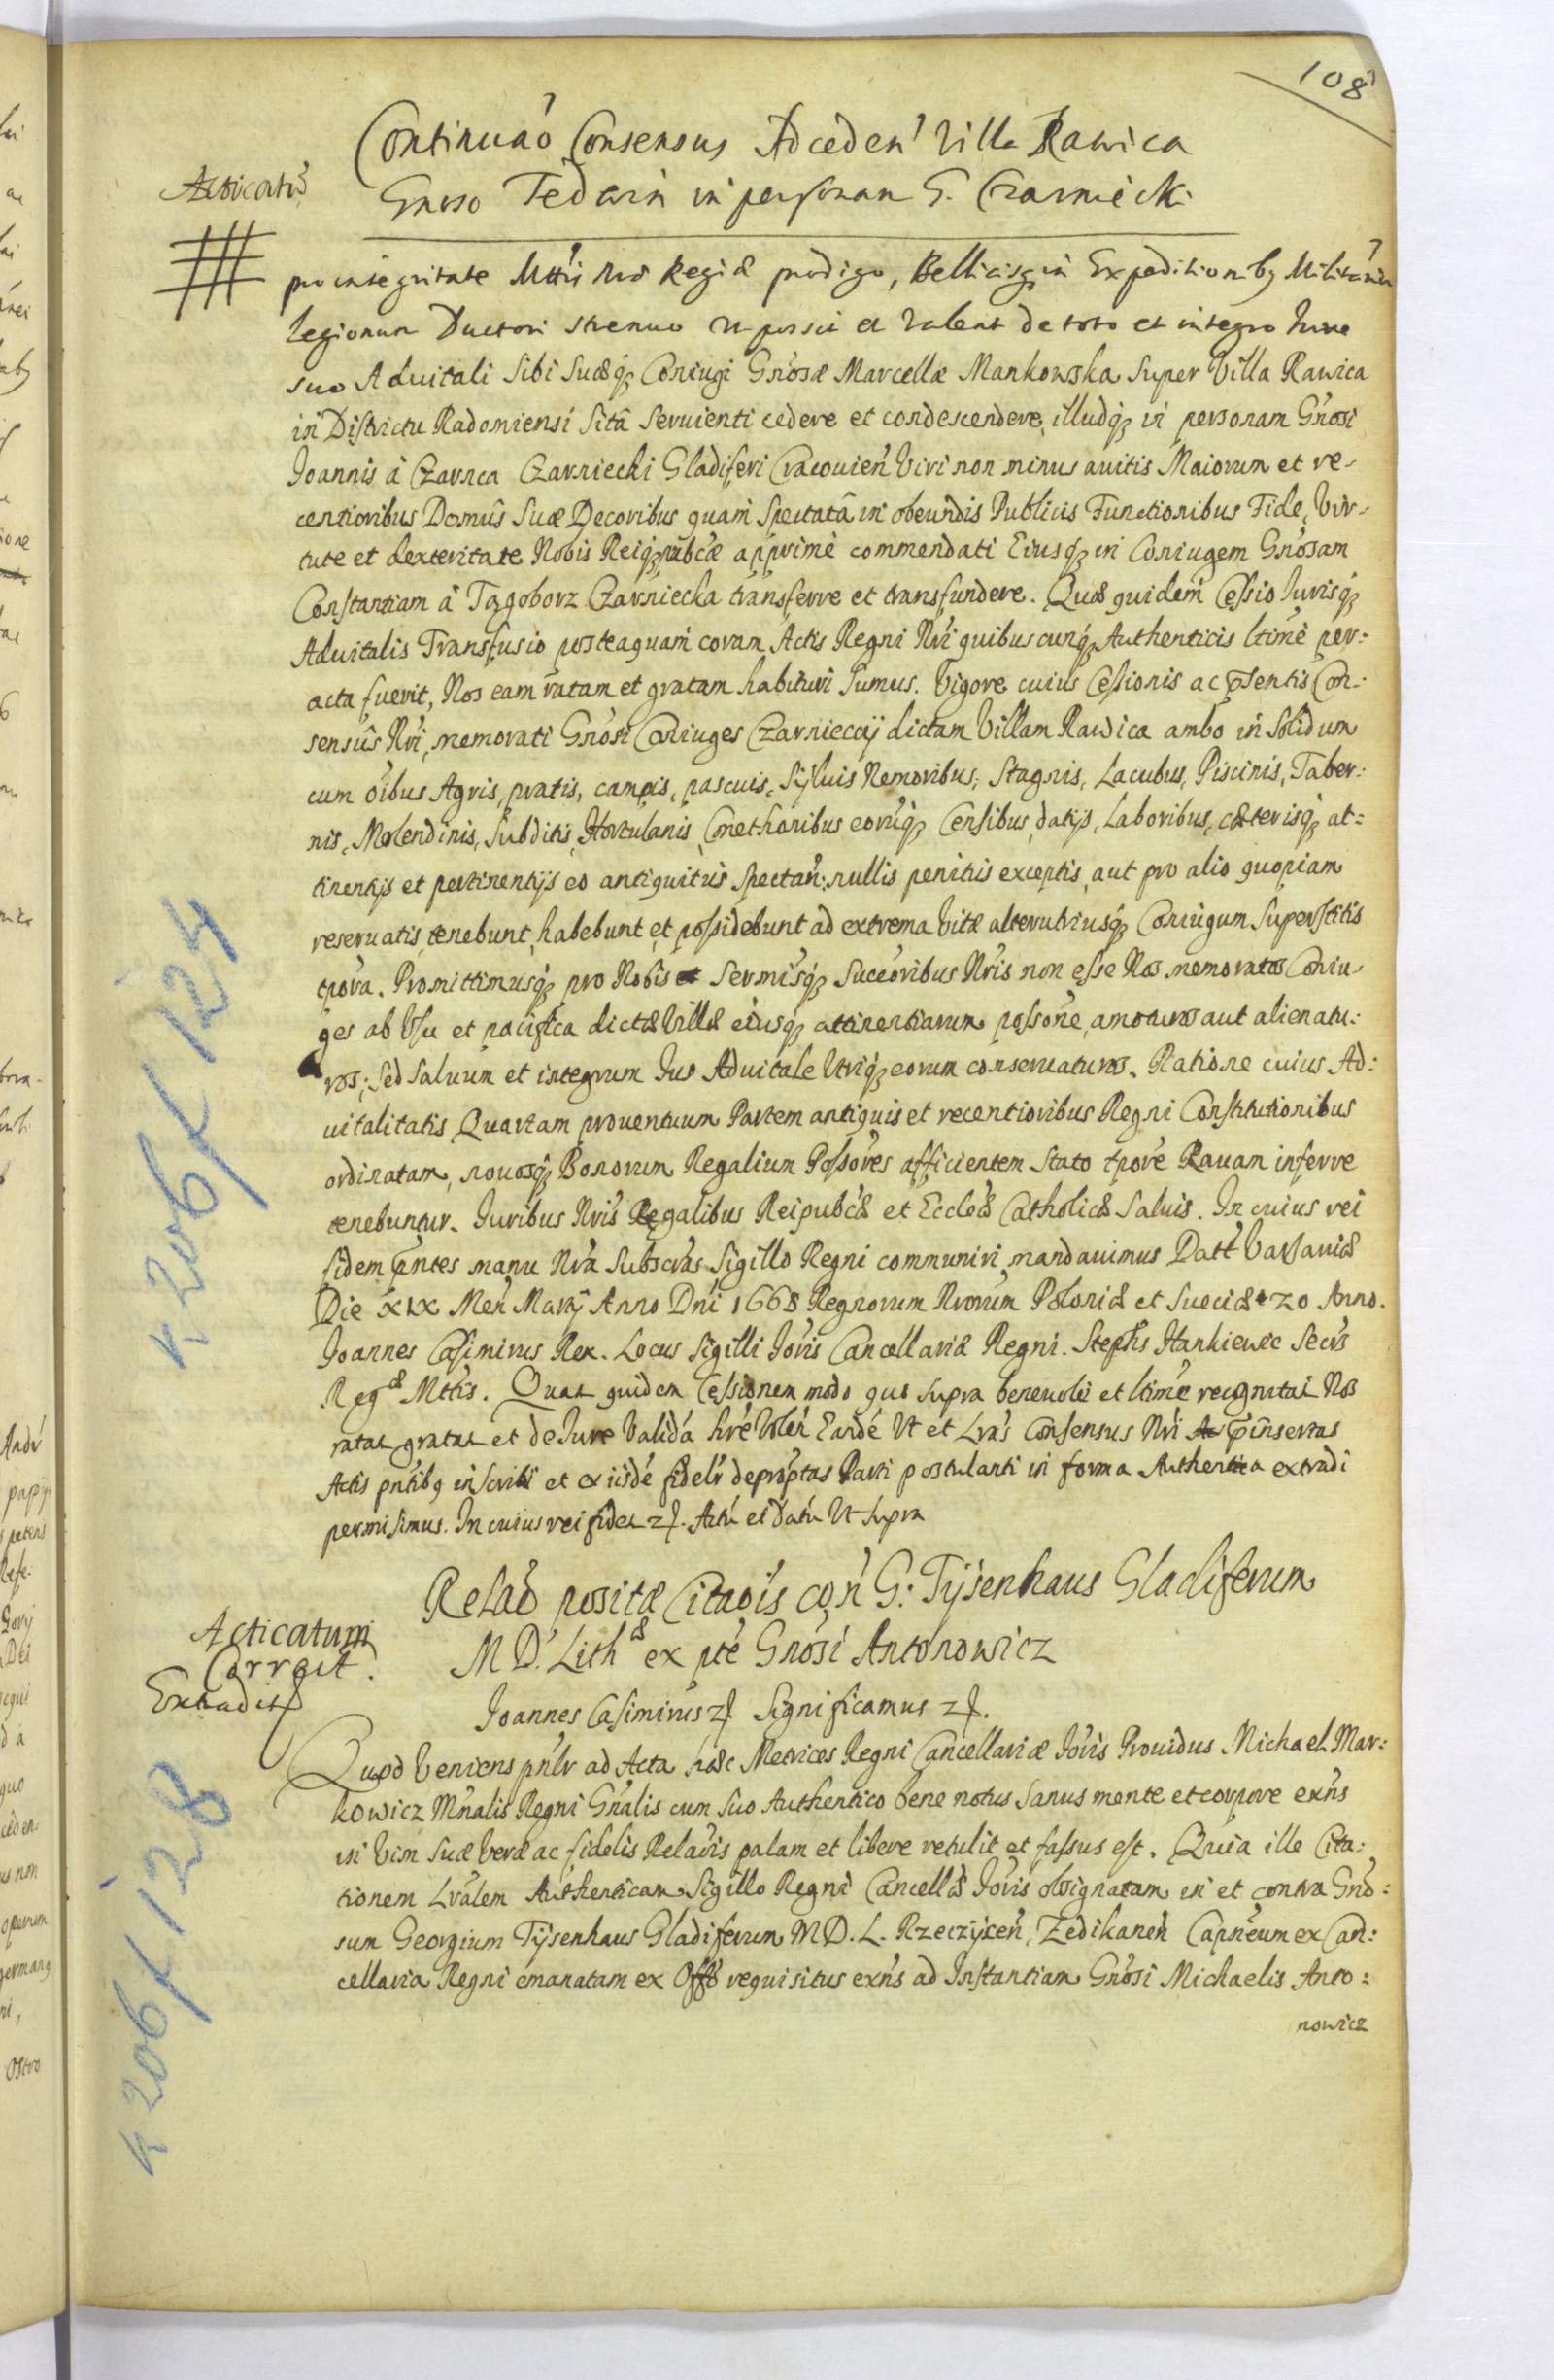 108
Continuaó Consensus Adceden' Villa Rawica
Acticatũ
Gnoso Fedwin in personam G. Czarniecki
pro integritate Mttis Nrae Regiae prodigo, Bellicisq; in Expeditionib9 Militariu
legionum Ductori strenuo ut possit et valeat de toto et integro Iure
suo Aduitali Sibi Suaeq; Coniugi Gnosae Marcellae Mankowska Super Villa Rawica
in Districtu Radomiensi Sitâ Seruienti cedere et condescendere, illudq; in personam Gnosi
Joannis à Czarnca Czarniecki Gladiferi Cracouien Viri non minus auitis Maiorum et re-
centioribus Domûs Suae Decoribus quam Spectatâ in obeundis Publicis Functionibus Fide, Vir-
tute et dexteritate Nobis Reiq; pubcae apprimè commendati Eiusq; in Coniugem Gnosam
Constantiam à Tęgoborz Czarniecka transferre et transfundere. Quae quidem Cessio Iurisq;
Aduitalis Transfusio posteaquam coram Actis Regni Nri quibuscunq; Authenticis ltimè per:
acta fuerit, Nos eam ratam et gratam habituri sumus. Vigore cuius Cessionis ac psentis Con:
sensûs Nri, memorati Gnosi Coniuges Czarnieccy dictam Villam Rawica ambo in solidum
cum oibus Agris, pratis, campis, pascuis, Syluis Nemoribus, Stagnis, Lacubus, Piscinis, Taber:
nis, Molendinis, Subditis, Hortulanis, Cmethonibus eorũq; Censibus, datys, Laboribus, caeterisq; at=
tinentys et pertinentys eo antiquitùs spectan: nullis penitùs exceptis, aut pro alio quopiam
reseruatis tenebunt, habebunt et possidebunt ad extrema Vitae alterutriusq; Coniugum Superstitis
tpora. Promittimusq; pro Nobis et Sermisq; Succoribus Nris non esse Nos memoratos Coniu-
ges ab Vsu et pacifica dictae Villae eiusq; attinentiarum possone amoturos aut alienatu:
ros; sed saluum et integrum Ius Aduitale Vtriq; eorum conseruaturos. Ratione cuius Ad:
uitalitatis Quartam prouentuum Partem antiquis et recentioribus Regni Constitutionibus
ordinatam, nouosq; Bonorum Regalium Possores afficientem Stato tpore Rauam inferre
tenebuntur. Iuribus Nris Regalibus Reipubcae et Ecclae Catholicae Saluis. In cuius rei
fidem pntes manu Nra Subscras Sigillo Regni communiri mandauimus Datt Varsauiae
Die XIX Men Martij Anno Dni 1668 Regnorum Nrorum Poloniae et Sueciae 20 Anno.
Joannes Casimirus Rex. Locus Sigilli Ioris Cancellariae Regni. Stephs Hankiewic Secrs
Regae Mttis. Quas quidem Cessionem modo quo supra beneuole et ltime recognitas Nos
ratas gratas et de Iure Validá hré Volen Eandé Vt et Lras Consensus Nri pinsertas
Actis pntib9 inscribi et ex iisdé fidelr deproptas Parti postulanti in forma Authentica extradi
permisimus. In cuius rei fidem zt. Actũ et Datũ Vt supra
Relaó positae Citaois con G: Tysenhaus Gladiferum
Acticatum
M D. Lithae ex pte Gnosi Antonowicz
Correct.
Extradit
Joannes Casimirus zt Significamus zt.
Quod Veniens pnlr ad Acta haec Metrices Regni Cancellariae Ioris Prouidus Michael Mar:
kowicz Mnalis Regni Gnalis cum Suo Authentico bene notus Sanus mente et corpore exns
in Vim Suae Verae ac fidelis Relaois palam et libere retulit et fassus est. Quia ille Cita:
tionem Lralem Authenticam Sigillo Regni Cancellae Ioris obsignatam in et contra Gno:
sum Georgium Tysenhaus Gladiferum M D. L. Rzeczycen, Zedikanen Capneum ex Can:
cellaria Regni emanatam ex Offo requisitus exns ad Instantiam Gnosi Michaelis Anto:
nowicz
k 206/124
k 206/128